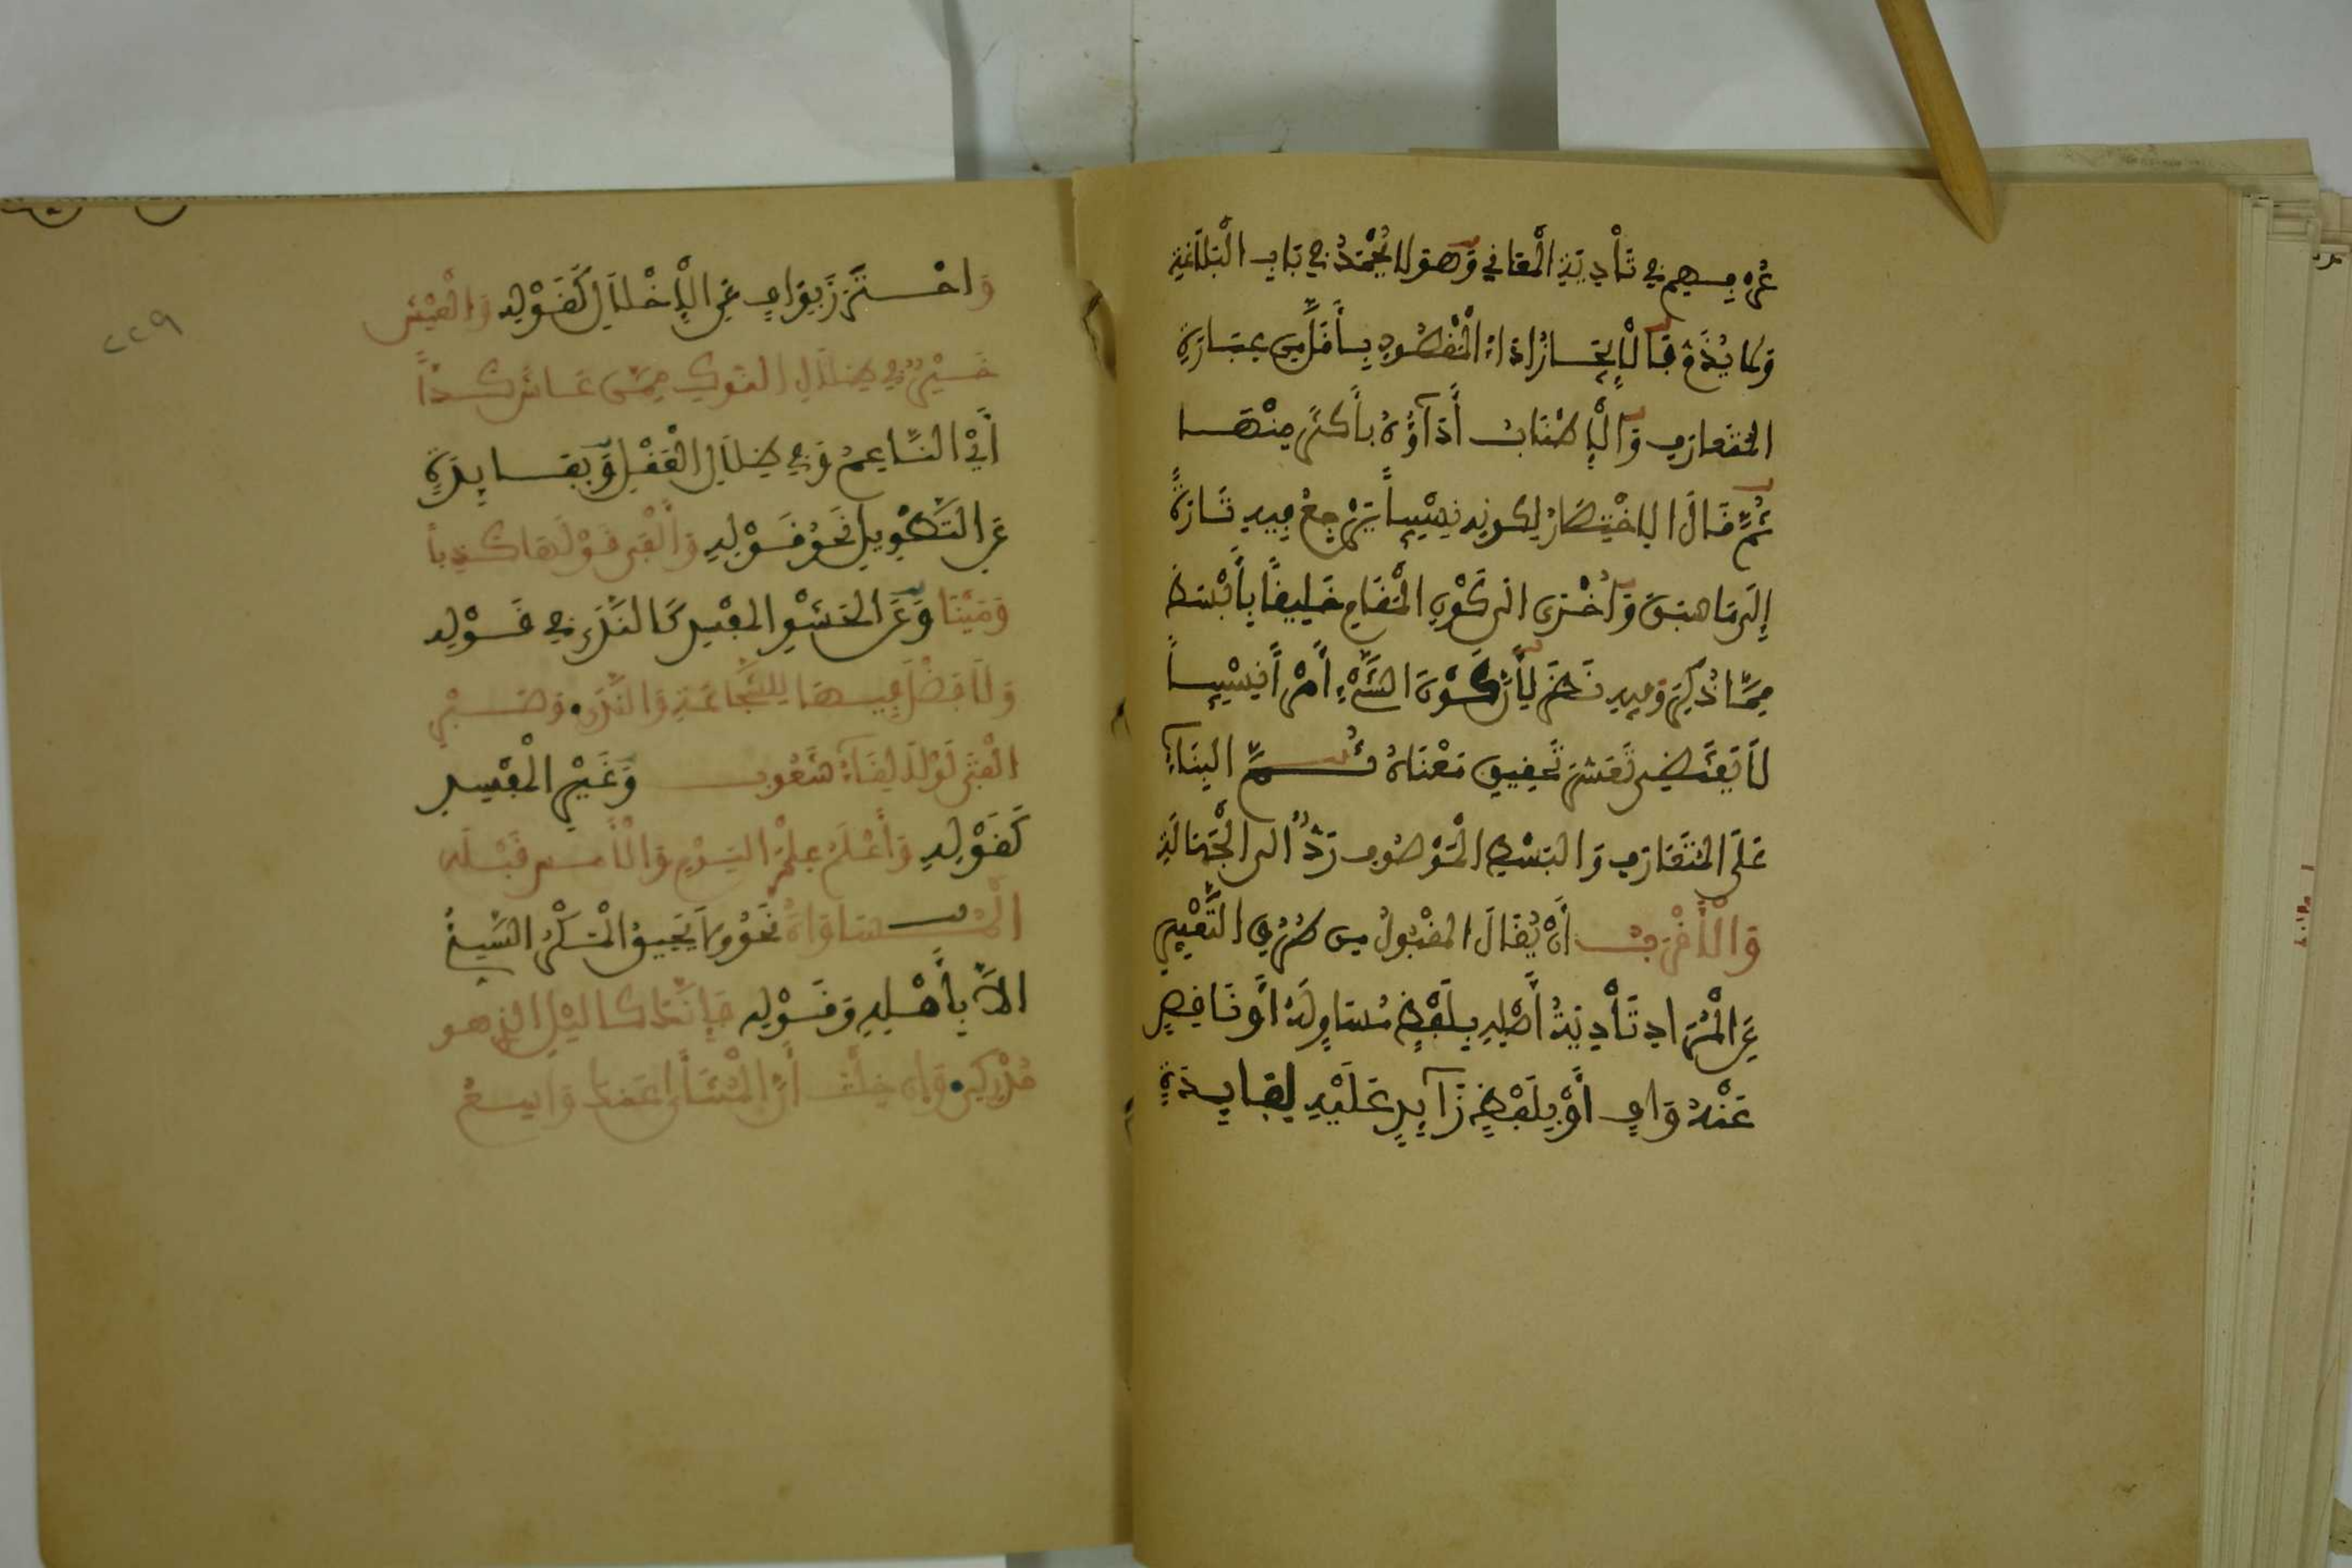 عُرْفِهِمْ فِي تَأْدِيَةِ الْمَعَانِي وَهُوَ لَا يُحْمَدُ فِي بَابِ الْبَلَاغَةِ
وَلَا يُذَمُّ فَالْإِيجَازُ أَدَاءُ الْمَقْصُودِ بِأَقَلَّ مِنْ عِبَارَةِ
الْمُتَعَارَفِ وَالْإِطْنَابُ أَدَاؤُهُ بِأَكْثَرَ مِنْهَا
ثُمَّ قَالَ الِاخْتِصَارُ لِكَوْنِهِ نِسْبِيّاً يَرْجِعُ فِيهِ تَارَةً
إِلَى مَا سَبَقَ وَأُخْرَى إِلَى كَوْنِ الْمَقَامِ خَلِيقاً بِأَبْسَطَ
مِمَّا ذُكِرَ وَفِيهِ نَظَرٌ لِأَنَّ كَوْنَ الشَّيْءِ أَمْراً نِسْبِيّاً
لَا يَقْتَضِي تَعَسُّرَ تَحْقِيقِ مَعْنَاهُ ثُمَّ الْبِنَاءُ
عَلَى الْمُتَعَارَفِ وَالْبَسْطِ الْمَوْصُوفِ رَدٌّ إِلَى الْجَهَالَةِ
وَالْأَقْرَبُ أَنْ يُقَالَ الْمَقْبُولُ مِنْ طُرُقِ التَّعْبِيرِ
عَنِ الْمُرَادِ تَأْدِيَةُ أَصْلِهِ بِلَفْظٍ مُسَاوٍ لَهُ أَوْ نَاقِصٍ
عَنْهُ وَافٍ أَوْ بِلَفْظٍ زَائِدٍ عَلَيْهِ لِفَائِدَةٍ
٢٢٩
وَاحْتَرَزَ بِوَافٍ عَنِ الْإِخْلَالِ كَقَوْلِهِ وَالْعَيْشُ
خَيْرٌ فِي ظِلَالِ النَّوْكِ مِمَّنْ عَاشَ كَدّاً
أَيْ النَّاعِمُ وَفِي ظِلَالِ الْعَقْلِ وَبِفَائِدَةٍ
عَنِ التَّطْوِيلِ نَحْوُ قَوْلِهِ وَأَلْفَى قَوْلَهَا كَذِباً
وَمَيْنَا وَعَنِ الْحَشْوِ الْمُفْسِدِ كَالنَّدَى فِي قَوْلِهِ
وَلَا فَضْلَ فِيهَا لِلشَّجَاعَةِ وَالنَّدَى وَصَبْرِ
الْفَتَى لَوْلَا لِقَاءُ شَعُوبِ وَغَيْرِ الْمُفْسِدِ
كَقَوْلِهِ وَأَعْلَمُ عِلْمَ الْيَوْمِ وَالْأَمْسِ قَبْلَهُ
الْمُسَاوَاةُ نَحْوُ وَلَا يَحِيقُ الْمَكْرُ السَّيِّئُ
إِلَّا بِأَهْلِهِ وَقَوْلِهِ فَإِنَّكَ كَاللَّيْلِ الَّذِي هُوَ
مُدْرِكِي وَإِنْ خِلْتُ أَنَّ الْمُنْتَأَى عَنْكَ وَاسِعُ